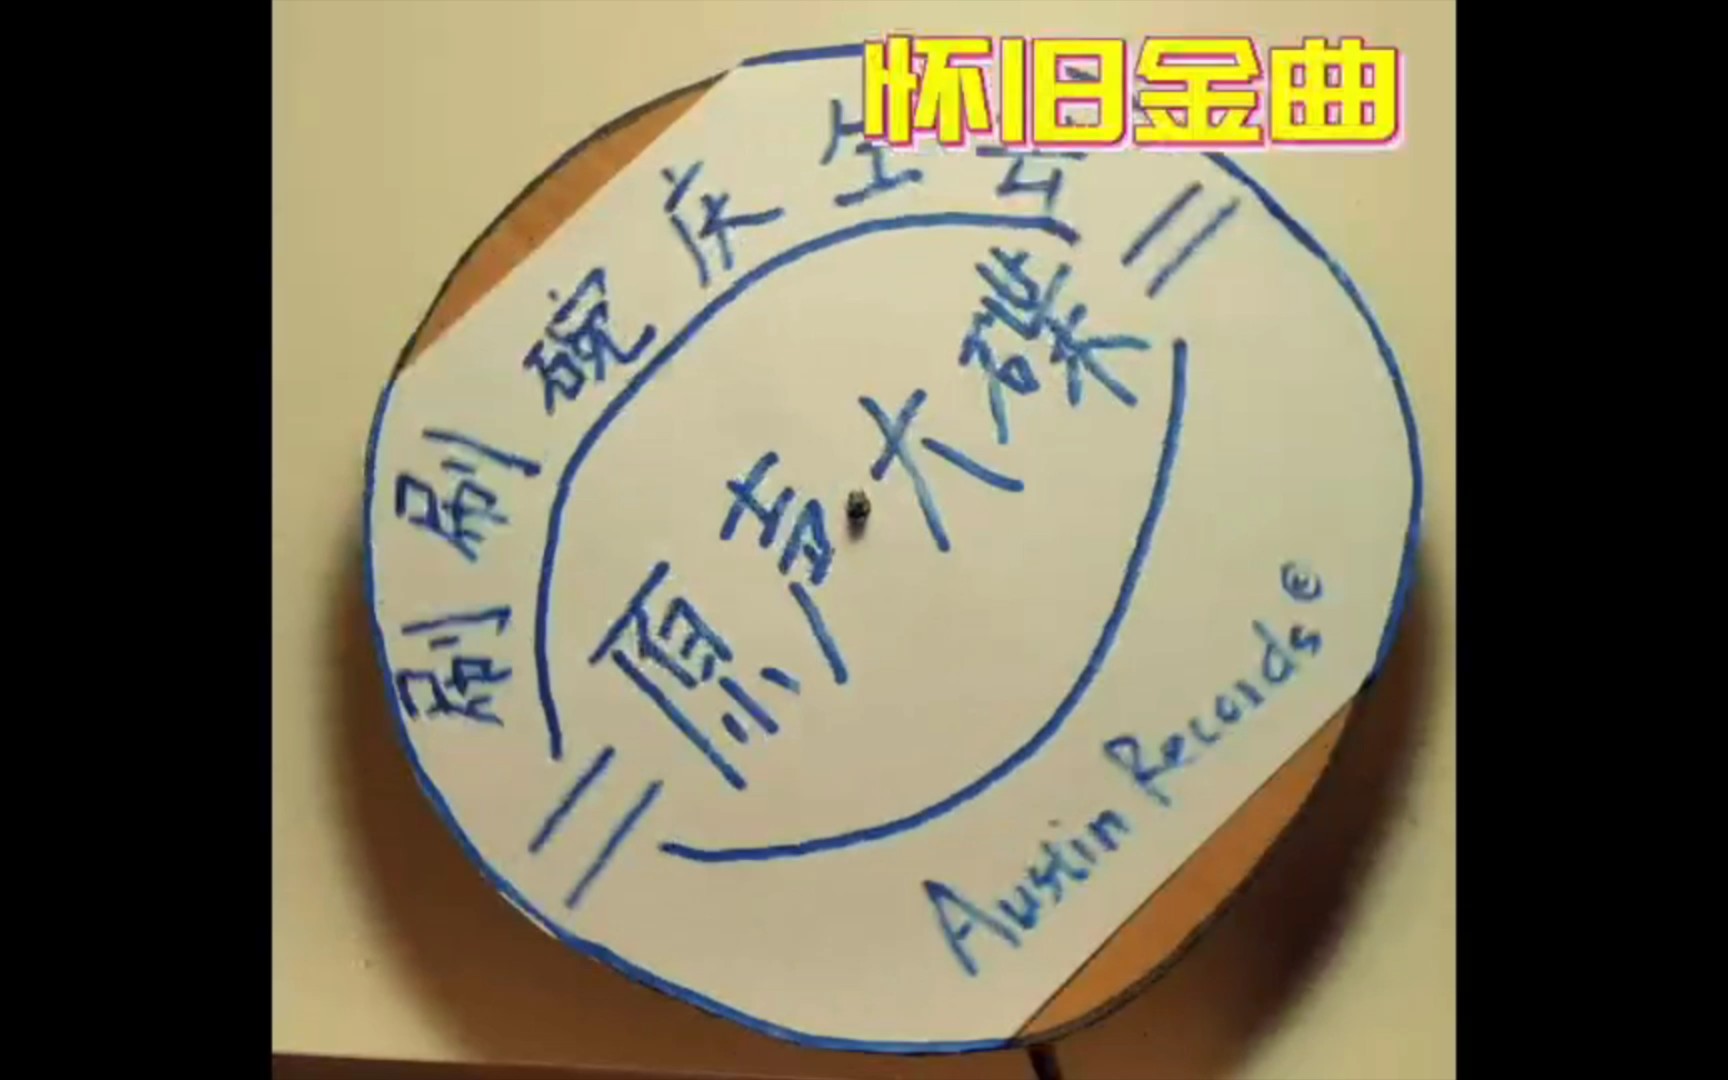 怀旧金曲
刷刷碗庆生会
原声大碟
Austin Records ©